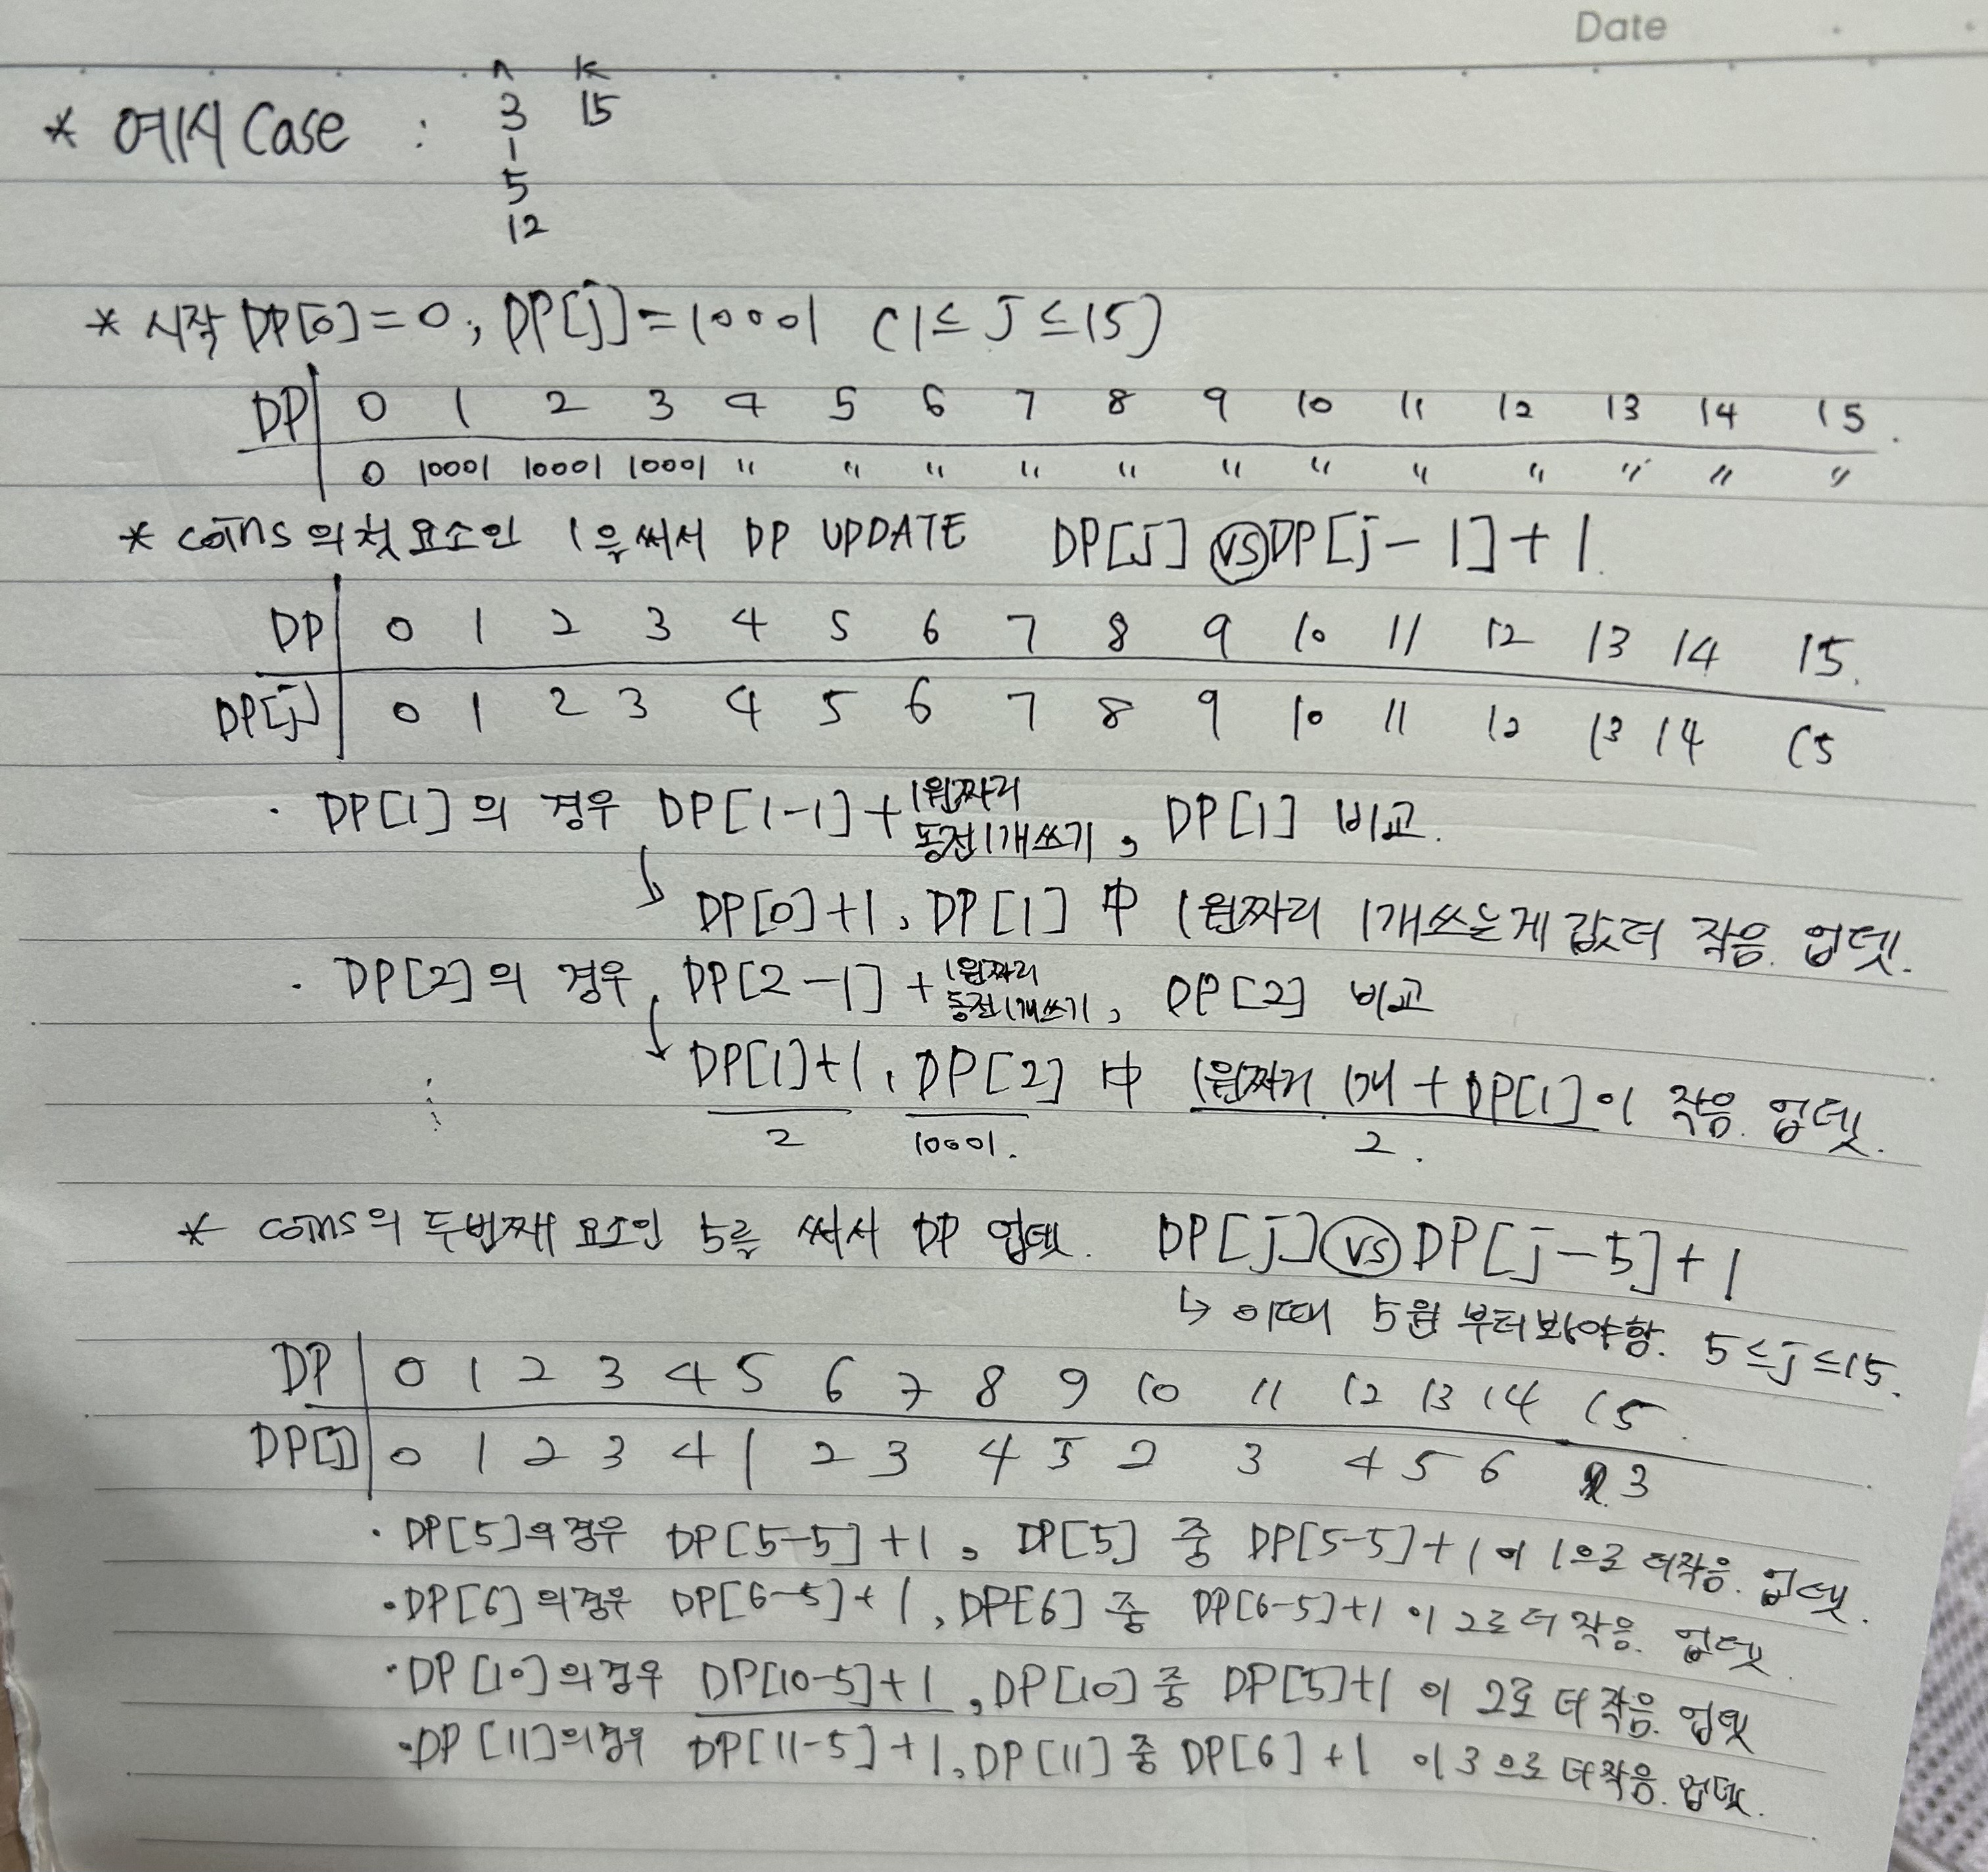 Date
n k
* 예시 Case : 3 15
1
5
12
* 시작 DP[0]=0, DP[j]=10001 (1≤j≤15)
DP 0 1 2 3 4 5 6 7 8 9 10 11 12 13 14 15.
0 10001 10001 10001 " " " " " " " " " " " "
* coins의 첫 요소인 1을 써서 DP UPDATE DP[j] vs DP[j-1]+1.
DP 0 1 2 3 4 5 6 7 8 9 10 11 12 13 14 15.
DP[j] 0 1 2 3 4 5 6 7 8 9 10 11 12 13 14 15
· DP[1]의 경우 DP[1-1]+1원짜리 동전1개쓰기, DP[1] 비교.
↳ DP[0]+1, DP[1] 中 1원짜리 1개쓰는게 값 더 작음. 업뎃.
· DP[2]의 경우, DP[2-1]+1원짜리 동전1개쓰기, DP[2] 비교
↳ DP[1]+1, DP[2] 中 1원짜리 1개+DP[1]이 작음. 업뎃.
2 10001. 2.
* coins의 두번째 요소인 5를 써서 DP 업뎃. DP[j] vs DP[j-5]+1
↳ 이때 5원 부터 봐야함. 5≤j≤15.
DP 0 1 2 3 4 5 6 7 8 9 10 11 12 13 14 15.
DP[j] 0 1 2 3 4 1 2 3 4 5 2 3 4 5 6 3
· DP[5]의 경우 DP[5-5]+1, DP[5] 중 DP[5-5]+1이 1으로 더작음. 업뎃.
· DP[6]의 경우 DP[6-5]+1, DP[6] 중 DP[6-5]+1이 2로 더 작음. 업뎃.
· DP[10]의 경우 DP[10-5]+1, DP[10] 중 DP[5]+1이 2로 더 작음. 업뎃
· DP[11]의 경우 DP[11-5]+1, DP[11] 중 DP[6]+1이 3으로 더작음. 업뎃.